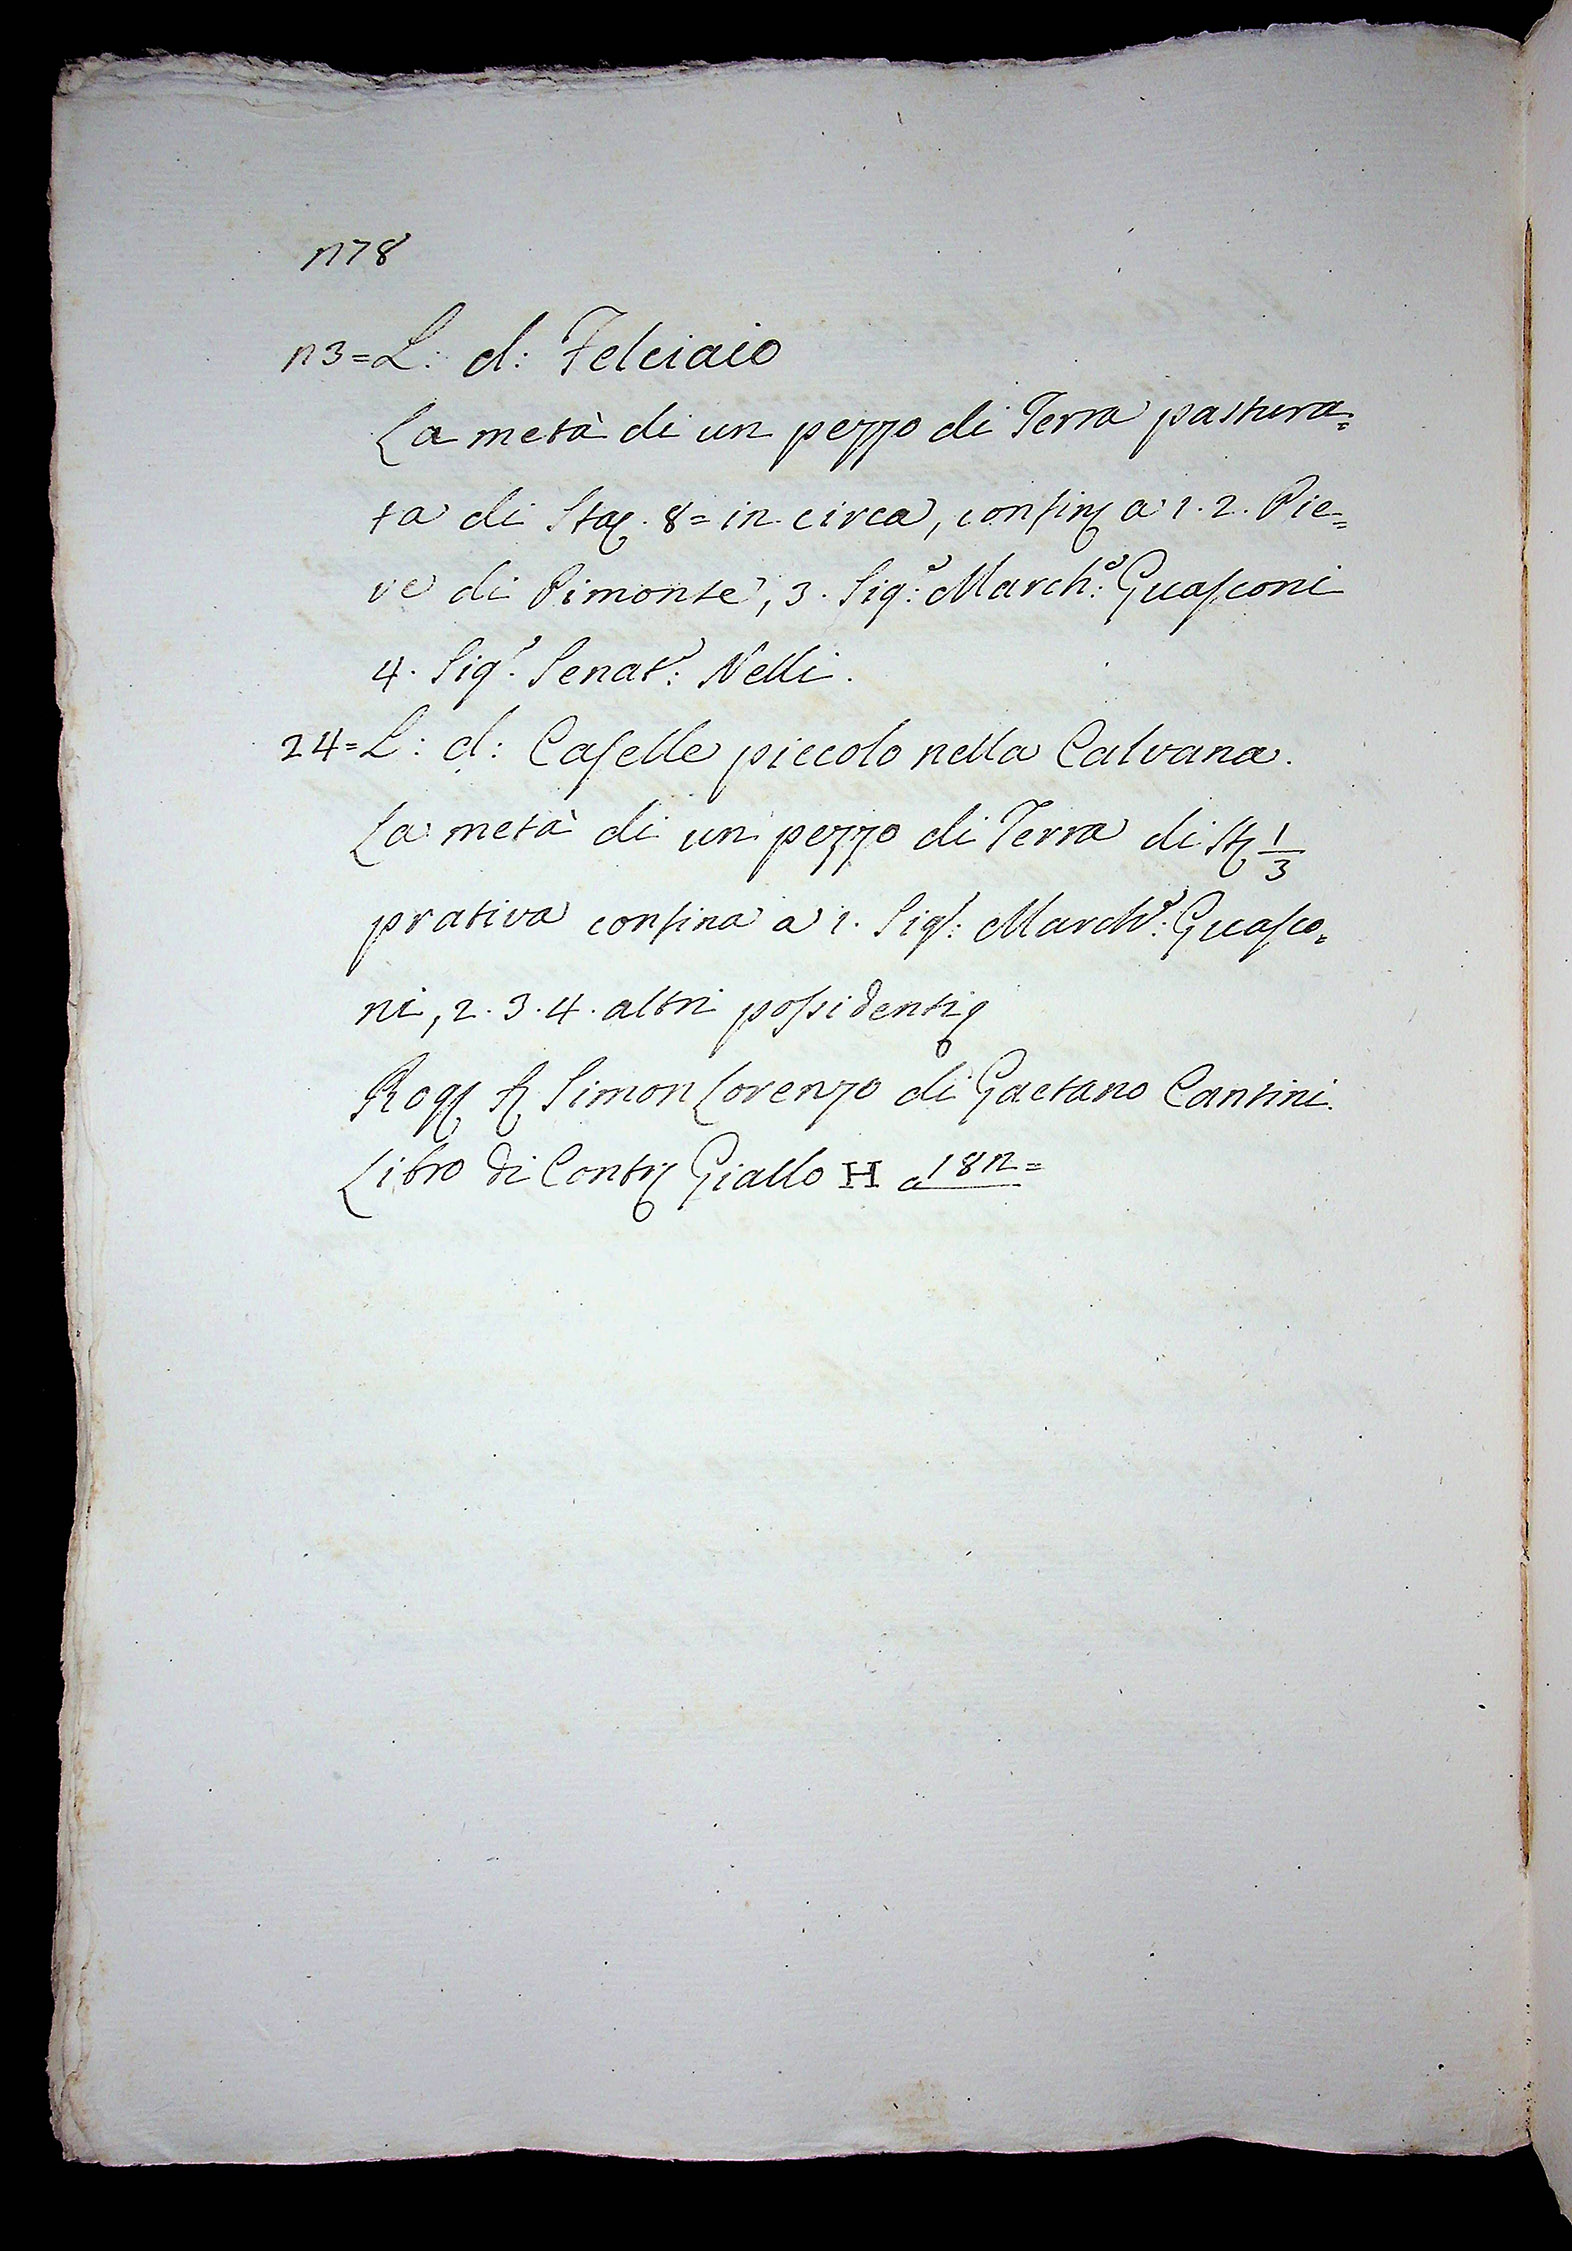 178
23=L: d: Felciaio
La metà di un pezzo di Terra pastura=
ta di Sta. 8= in circa, confin a 1. 2. Pie=
ve di Pimonte, 3. Sig:e March:e Guasconi
4. Sig.r Senat:r Nelli.
24=L: d: Caselle piccolo nella Calvana.
La metà di un pezzo di Terra di St 1/3
prativa confina a 1. Sig:r March:e Guasco=
ni, 2. 3. 4. altri possidenti
Rog Simon Lorenzo di Gaetano Cantini.
Libro di Contr Giallo H a 182=